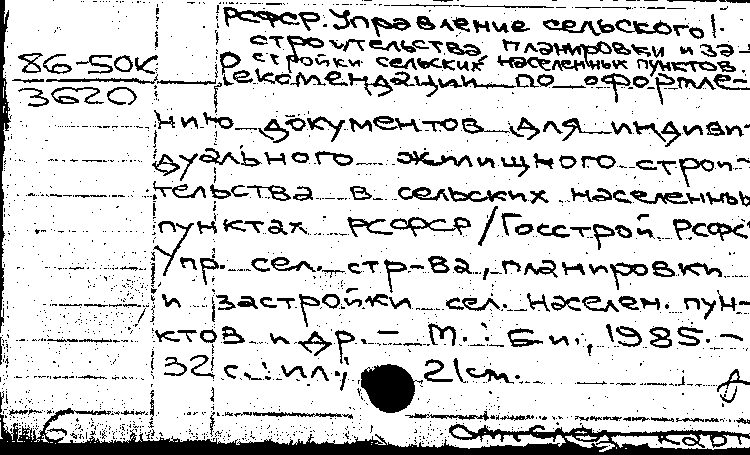 РСФСР. Управление сельского
строительства, планировки и за-
86-50К
стройки сельских населенных пунктов.
3620
Рекомендации по оформле-
нию документов для индиви-
дуального жилищного строи-
тельства в сельских населенных
пунктах РСФСР / Госстрой РСФСР
Упр. сел. стр-ва, планировки
и застройки сел. населен. пун-
ктов и др. – М. : Б. и., 1985. –
32 с. : ил.; 21 см.
6